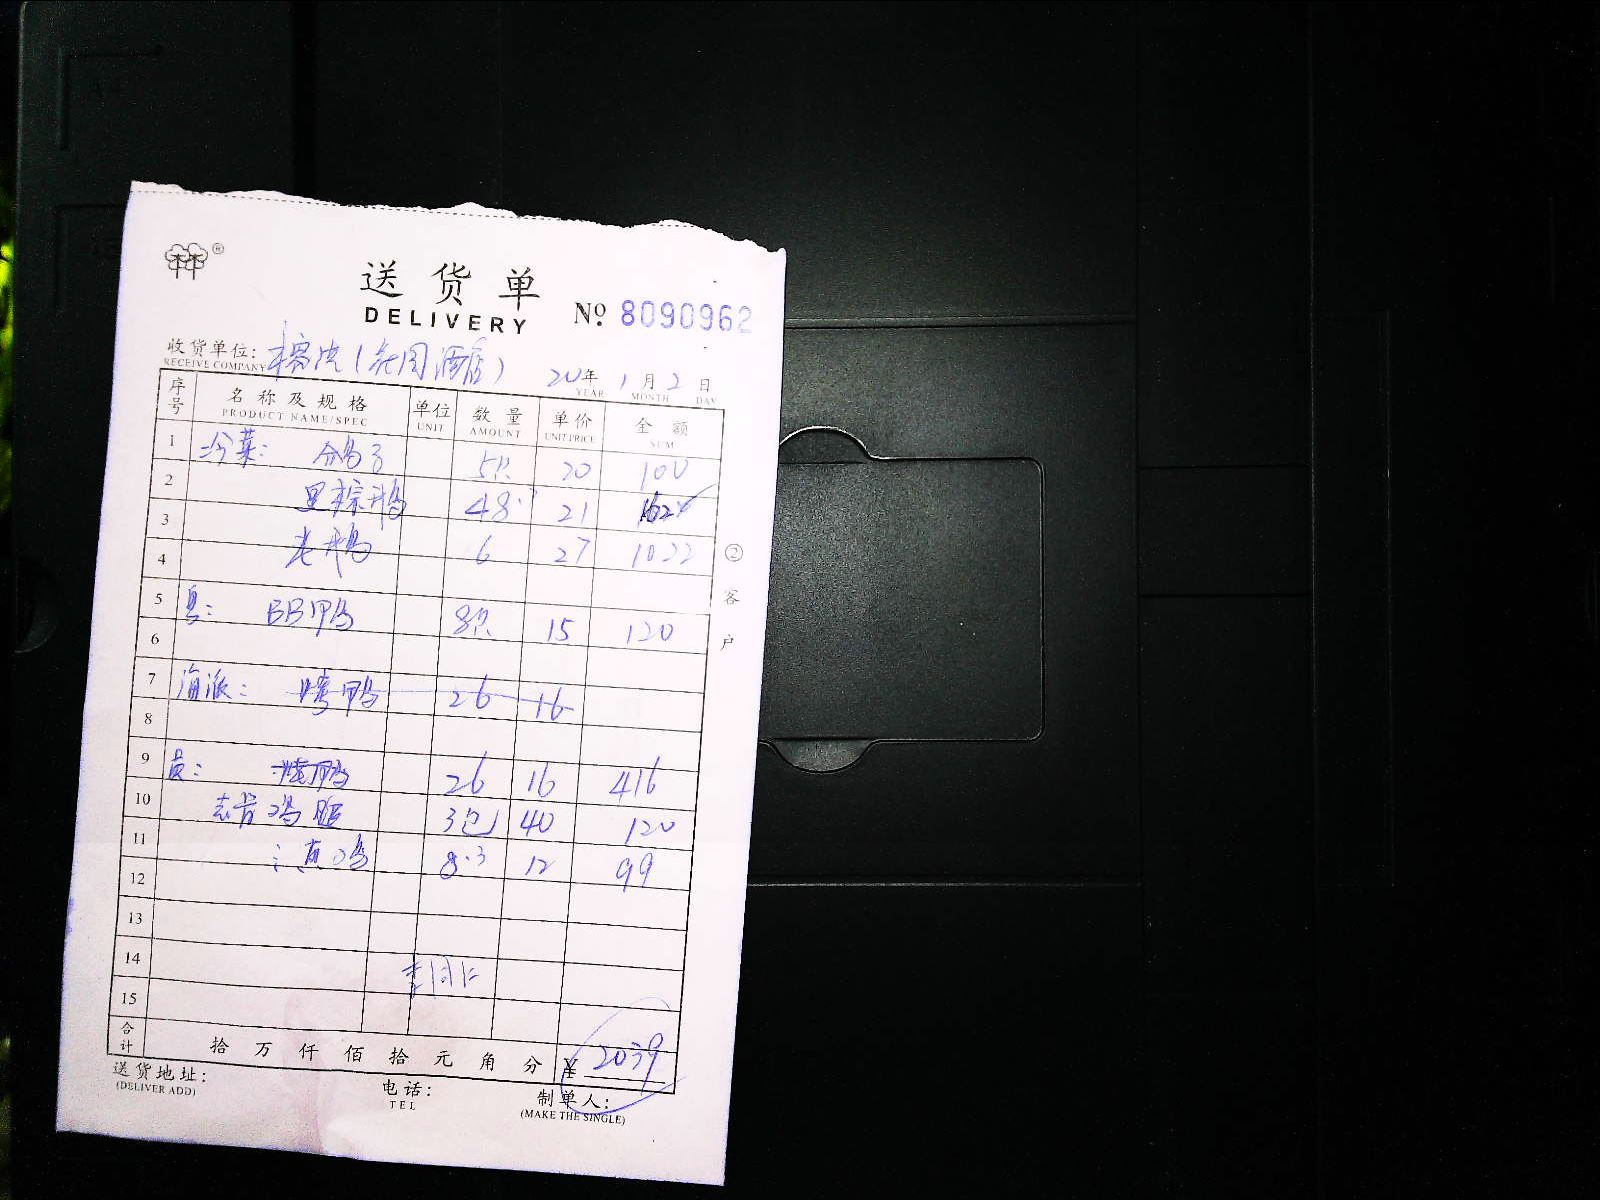 林®
送货单
DELIVERY
No 8090962
收货单位: (花园酒店) 20年1月2日
RECEIVE COMPANY YEAR MONTH DAY
序号 名称及规格 单位 数量 单价 金额
PRODUCT NAME/SPEC UNIT AMOUNT UNIT PRICE SUM
1 冷菜: 鸽子 5只 20 100
2 48.7 21
3 老鸭 6 27
4
5 BB鸭 8只 15 120
6
7 海派: 烤鸭 26 16
8
9 员: 烤鸭 26 16 416
10 鸡腿 3包 40 120
11 鸡 8.3 12 99
12
13
14
15
合计 拾万仟佰拾元角分 ¥2039
送货地址: 电话: 制单人:
(DELIVER ADD) TEL (MAKE THE SINGLE)
②客户